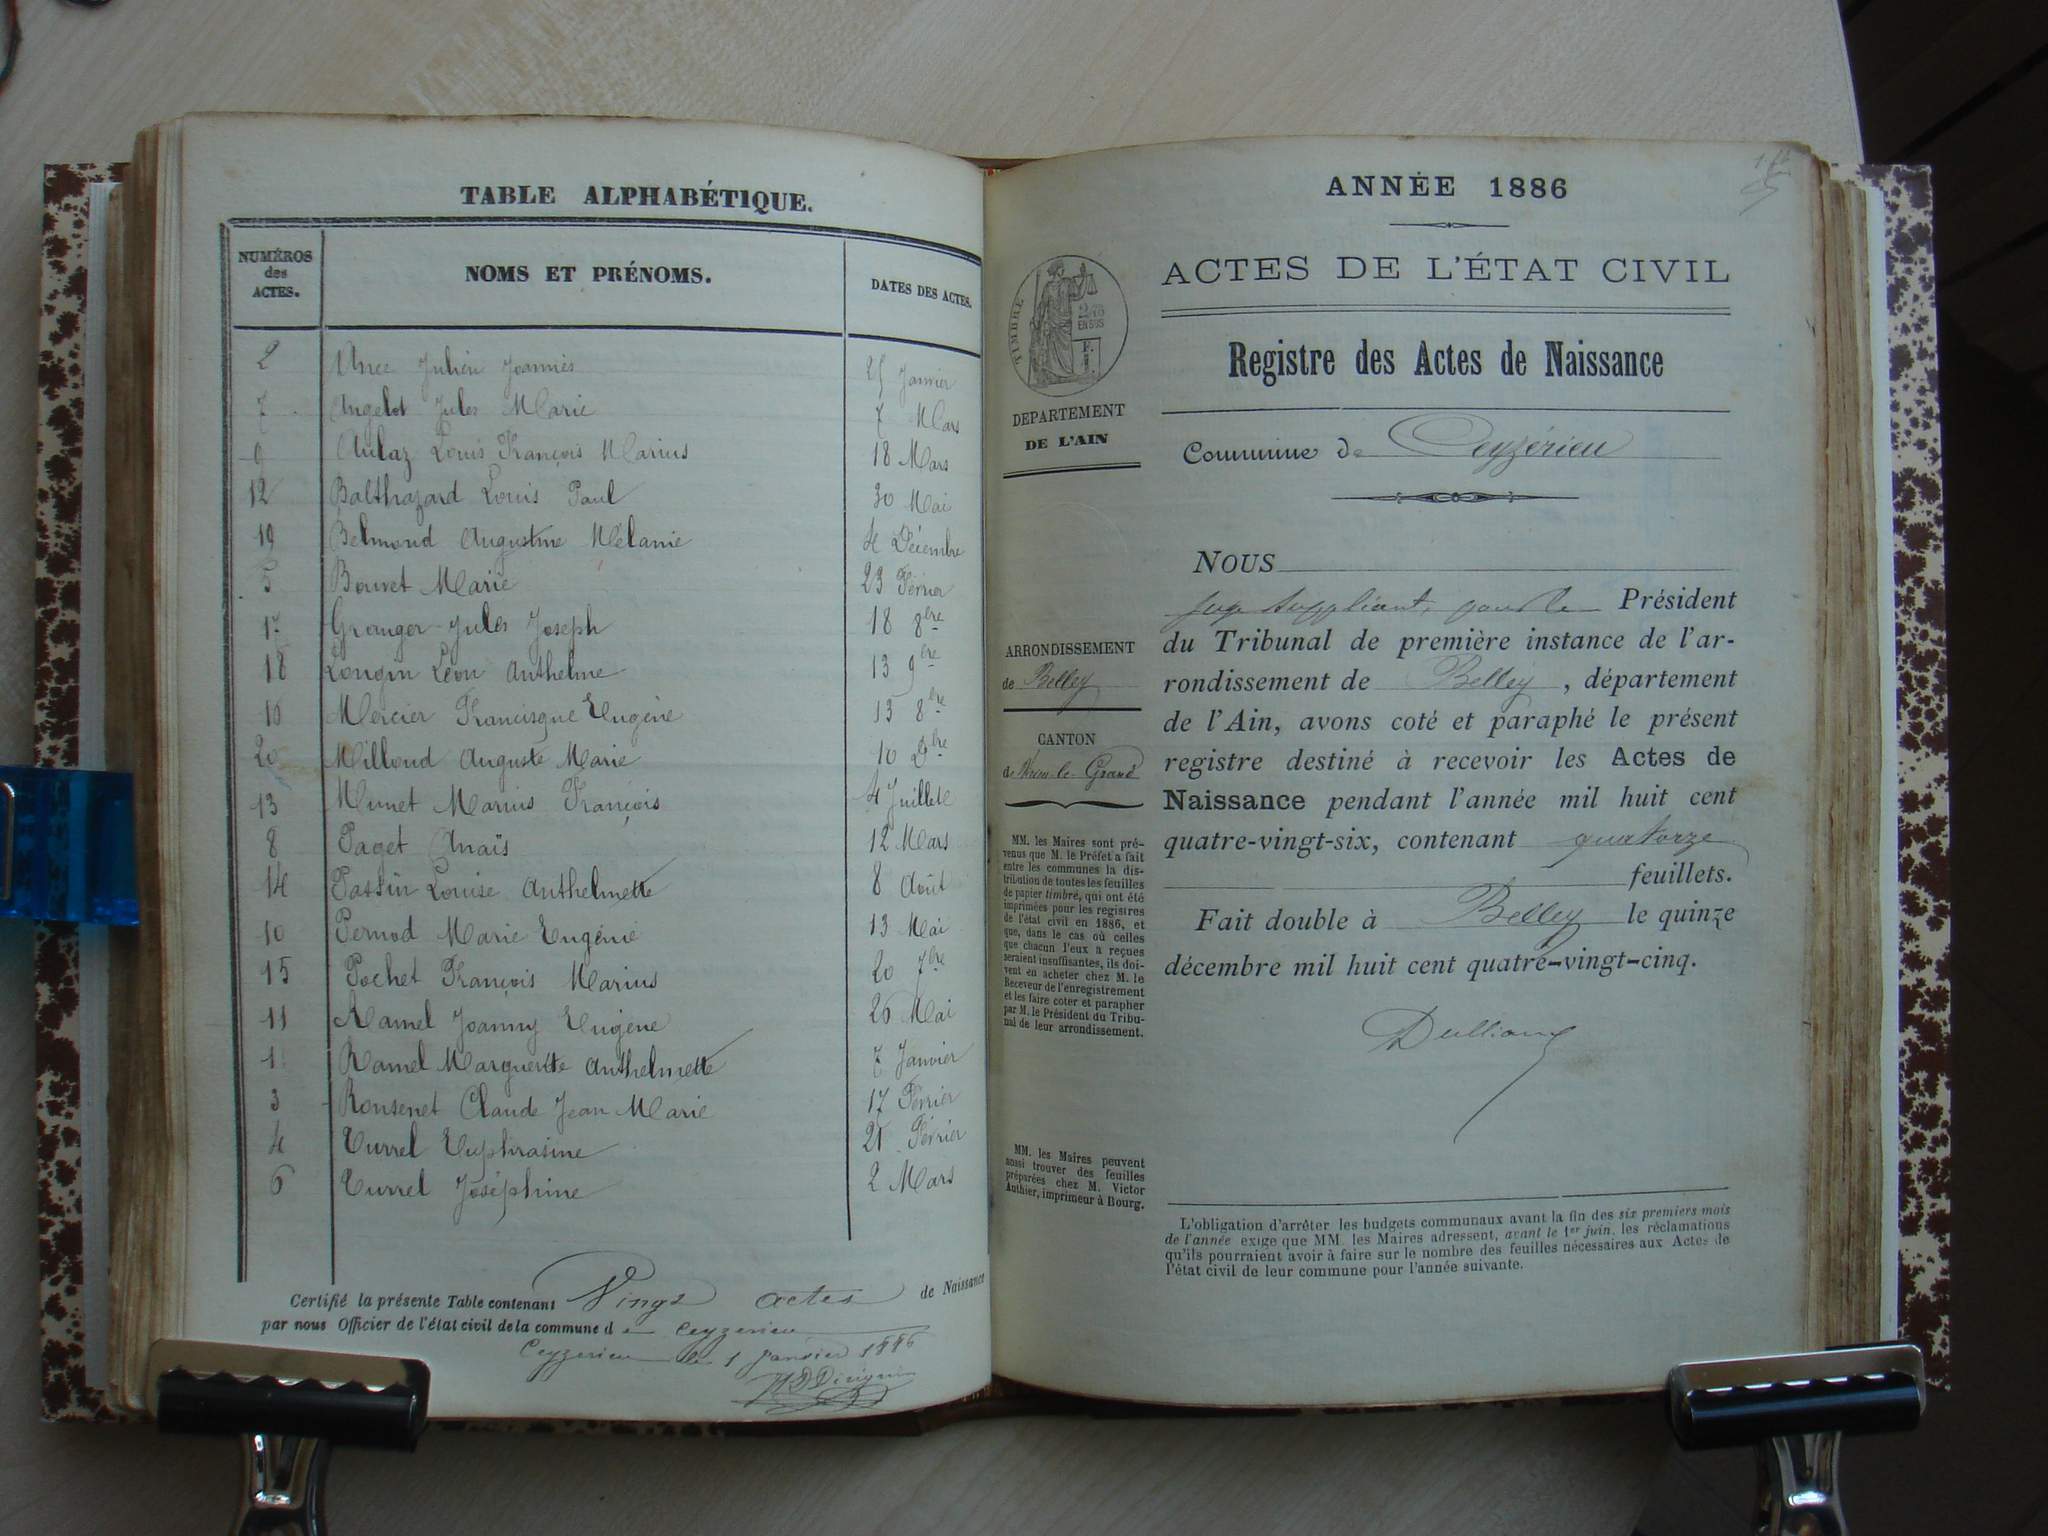 TABLE ALPHABÉTIQUE.
NUMÉROS des ACTES. NOMS ET PRÉNOMS. DATES DES ACTES.
2 Julien Joannès 25 Janvier
7 Angelot Jules Marie 7 Mars
9 Aulaz Louis François Marius 18 Mars
12 Balthazard Louis Paul 30 Mai
19 Belmond Augustine Mélanie 4 Décembre
5 Bouvet Marie 23 Février
17 Granger Jules Joseph 18 8bre
18 Longin Léon Anthelme 13 9bre
16 Mercier Francisque Eugène 13 8bre
20 Milloud Auguste Marie 10 Dbre
13 Munet Marius François 4 Juillet
8 Paget Anaïs 12 Mars
14 Louise Anthelmette 8 Août
10 Pernod Marie Eugénie 13 Mai
15 Pochet François Marius 20 7bre
11 Ramel Joanny Eugène 26 Mai
1 Ramel Marguerite Anthelmette 7 Janvier
3 Rousenet Claude Jean Marie 17 Février
4 Turrel Euphrasine 21 Février
6 Turrel Joséphine 2 Mars
Certifié la présente Table contenant Vingt actes de Naissance
par nous Officier de l'état civil de la commune de Ceyzerieu
Ceyzerieu le 1 janvier 1886
ANNÉE 1886
ACTES DE L'ÉTAT CIVIL
Registre des Actes de Naissance
Commune de Ceyzérieu
TIMBRE
2/10
EN SUS
DEPARTEMENT
DE L'AIN
ARRONDISSEMENT
de Belley
CANTON
de Virieu-le-Grand
MM. les Maires sont pré-
venus que M. le Préfet a fait
entre les communes la dis-
tribution de toutes les feuilles
de papier timbré, qui ont été
imprimées pour les registres
de l'état civil en 1886, et
que, dans le cas où celles
que chacun l'eux a reçues
seraient insuffisantes, ils doi-
vent en acheter chez M. le
Receveur de l'enregistrement
et les faire coter et parapher
par M. le Président du Tribu-
nal de leur arrondissement.
MM. les Maires peuvent
aussi trouver des feuilles
préparées chez M. Victor
Authier, imprimeur à Bourg.
NOUS
Juge suppléant, pour le Président
du Tribunal de première instance de l'ar-
rondissement de Belley, département
de l'Ain, avons coté et paraphé le présent
registre destiné à recevoir les Actes de
Naissance pendant l'année mil huit cent
quatre-vingt-six, contenant quatorze
feuillets.
Fait double à Belley le quinze
décembre mil huit cent quatre-vingt-cinq.
L'obligation d'arrêter les budgets communaux avant la fin des six premiers mois
de l'année exige que MM. les Maires adressent, avant le 1er juin, les réclamations
qu'ils pourraient avoir à faire sur le nombre des feuilles nécessaires aux Actes de
l'état civil de leur commune pour l'année suivante.